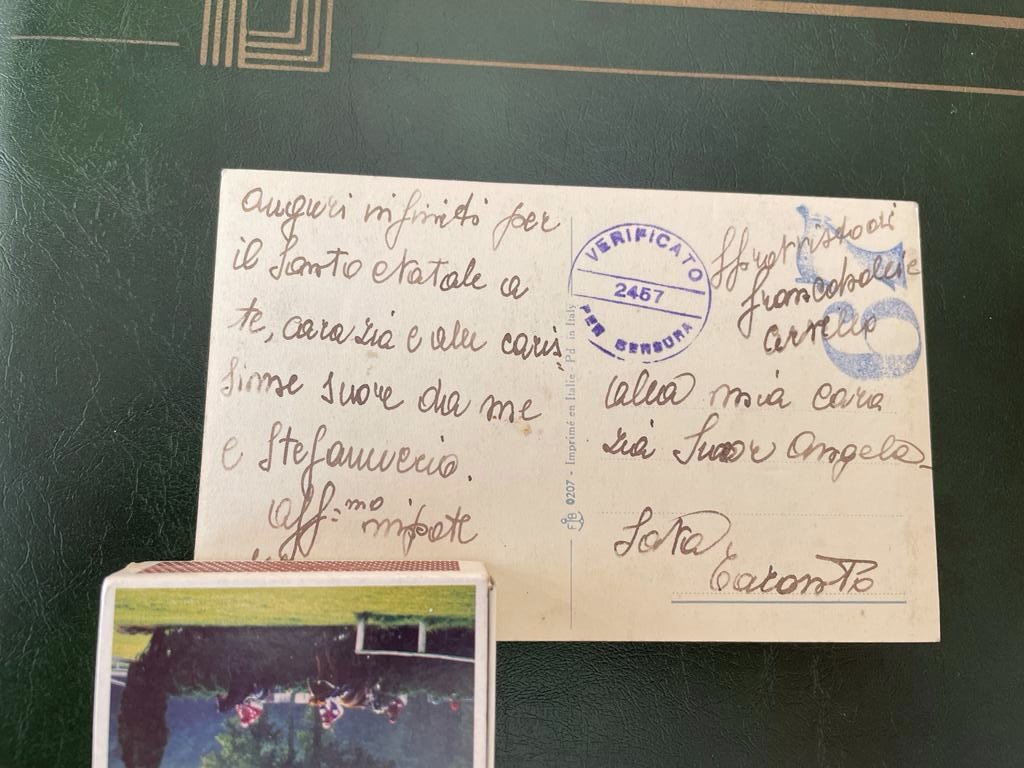 Auguri infiniti per
il Santo Natale a
te, cara zia e alle caris
sime suore da me
e Stefanuccio.
Aff.mo nipote
F|B 0207 - Imprimé en Italie - Pd. in Italy
VERIFICATO
2457
PER CENSURA
67
alla mia cara
zia Suor Angela
Taranto